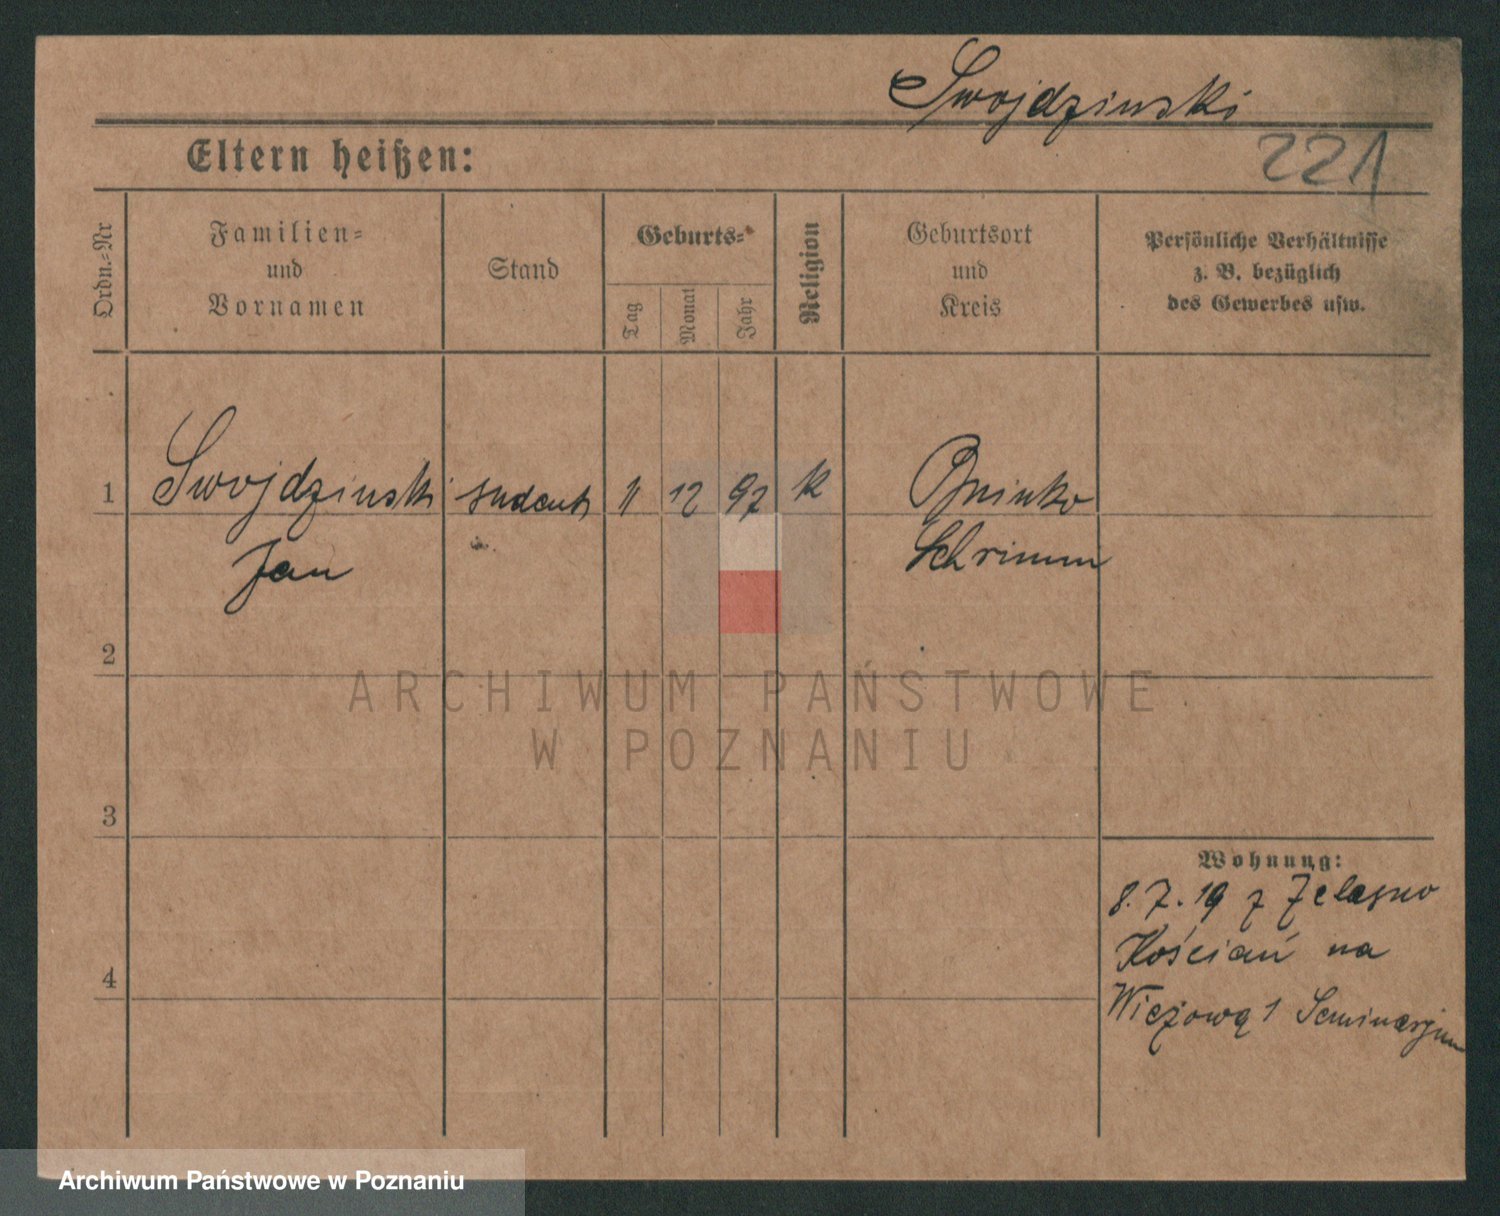 Swojdzinski
221
Eltern heißen:
Ordn.-Nr
Familien-
und
Vornamen
Stand
Geburts-
Tag
Monat
Jahr
Religion
Geburtsort
und
Kreis
Persönliche Verhältnisse
z. B. bezüglich
des Gewerbes usw.
1 Swojdzinski student 11 12 97 k Bninko
Jan Schrimm
2
ARCHIWUM PAŃSTWOWE
W POZNANIU
3
Wohnung:
8. 7. 19 z Zelasno
Kościań na
4
Wieżową 1 Seminarjum
Archiwum Państwowe w Poznaniu